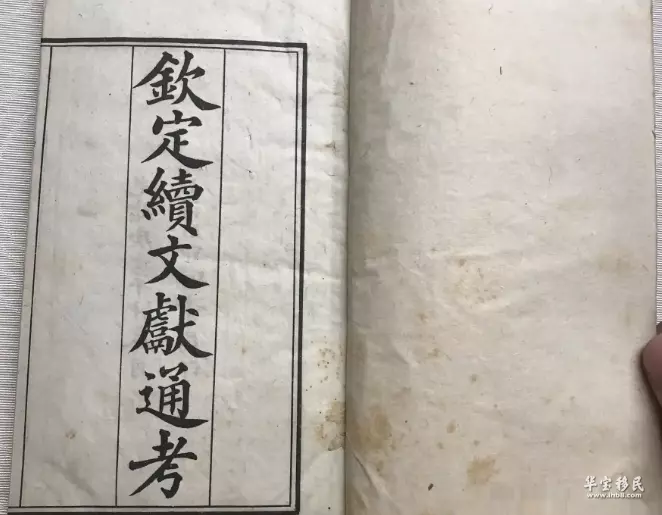 欽定續文獻通考
华宝移民
www.lnbll.com